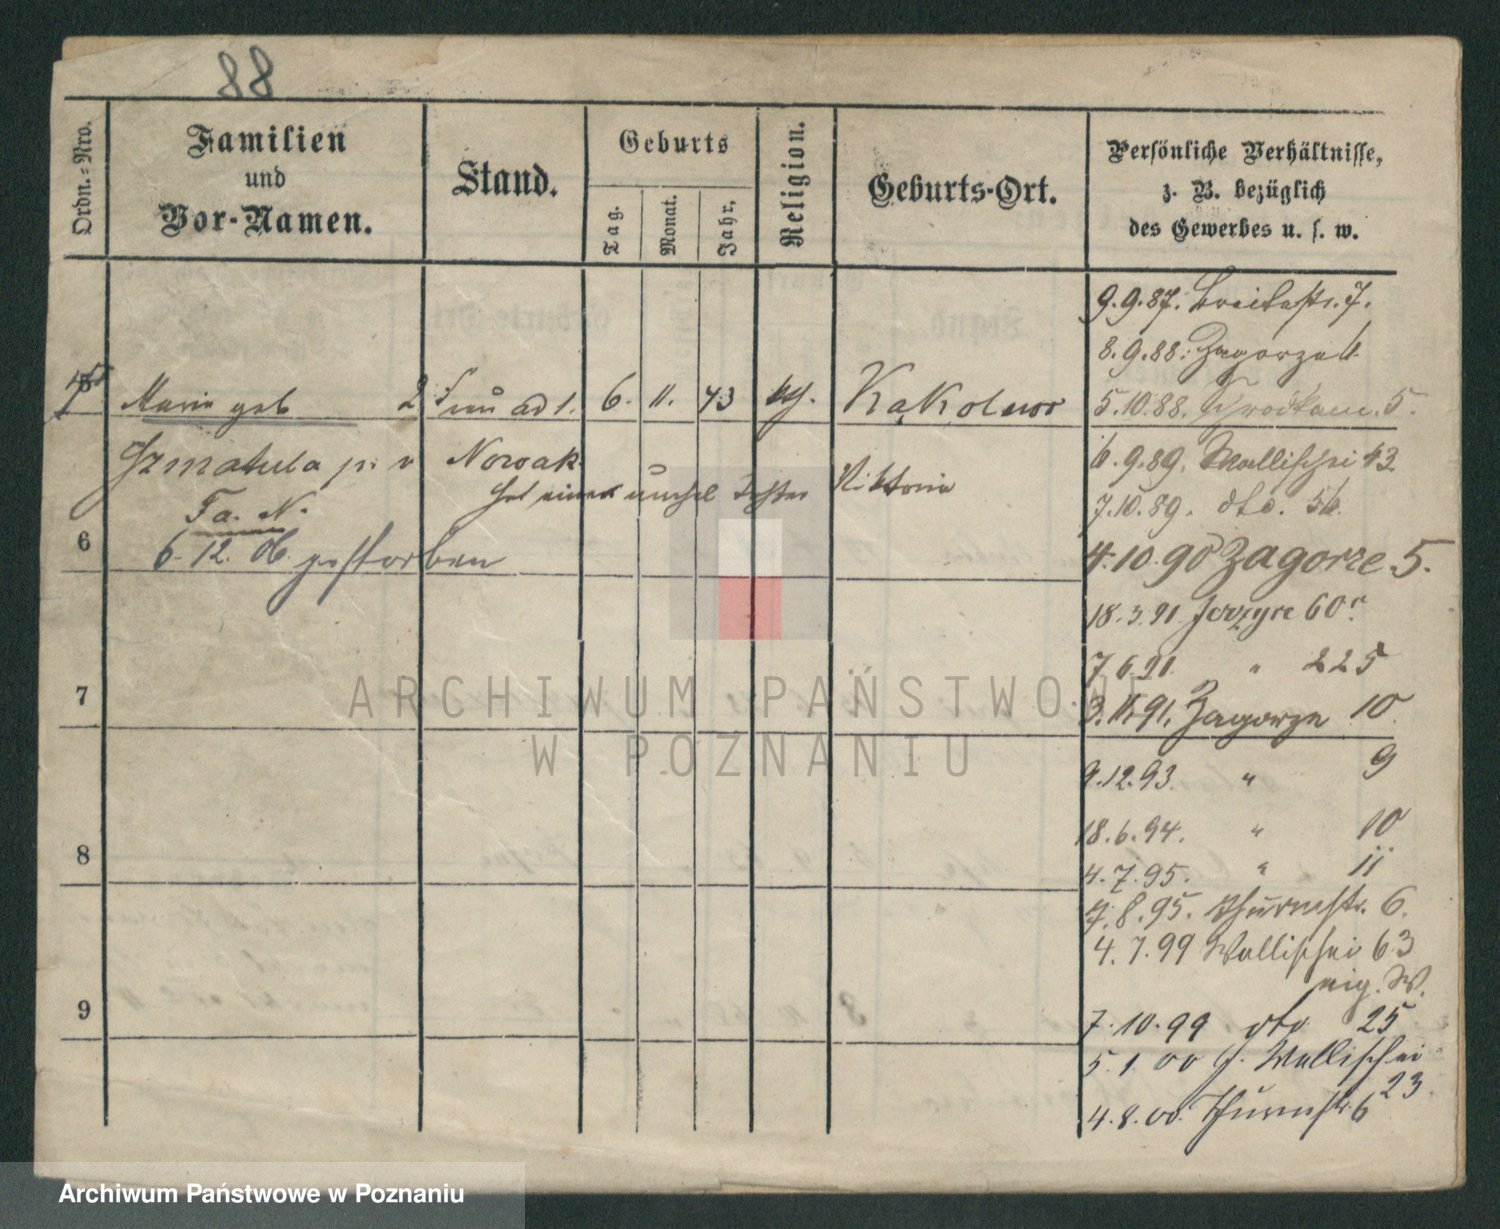 88
Ordn.-Nro.
Familien
und
Vor-Namen.
Stand.
Geburts
Tag.
Monat.
Jahr.
Religion.
Geburts-Ort.
Persönliche Verhältnisse,
z. B. bezüglich
des Gewerbes u. s. w.
9.9.87. Breitestr. 7.
8.9.88. Zagorze 6
Marie geb 2 Frau ad 1. 6. 11. 73 Kąkolewo 5.10.88. 5.
Szmatula p. v Nowak 6.9.89. Wallischei 43.
hat eine unehel Tochter Viktoria
Fa. N. 7.10.89. dto. 56.
6 6. 12. 06. gestorben 4.10.90 Zagorze 5.
18.3.91 Jerzyce 60a
7.6.91. " 225
7 3.11.91. Zagorze 10.
9.12.93. " 9
18.6.94. " 10
8 4.7.95. " 11
7.8.95. Thurmstr. 6.
4.7.99 Wallischei 63
eig. W.
9 7.10.99 dto 25
5.1.00 Wallischei
23.
4.8.00. Thurmstr. 6
ARCHIWUM PAŃSTWOWE
W POZNANIU
Archiwum Państwowe w Poznaniu